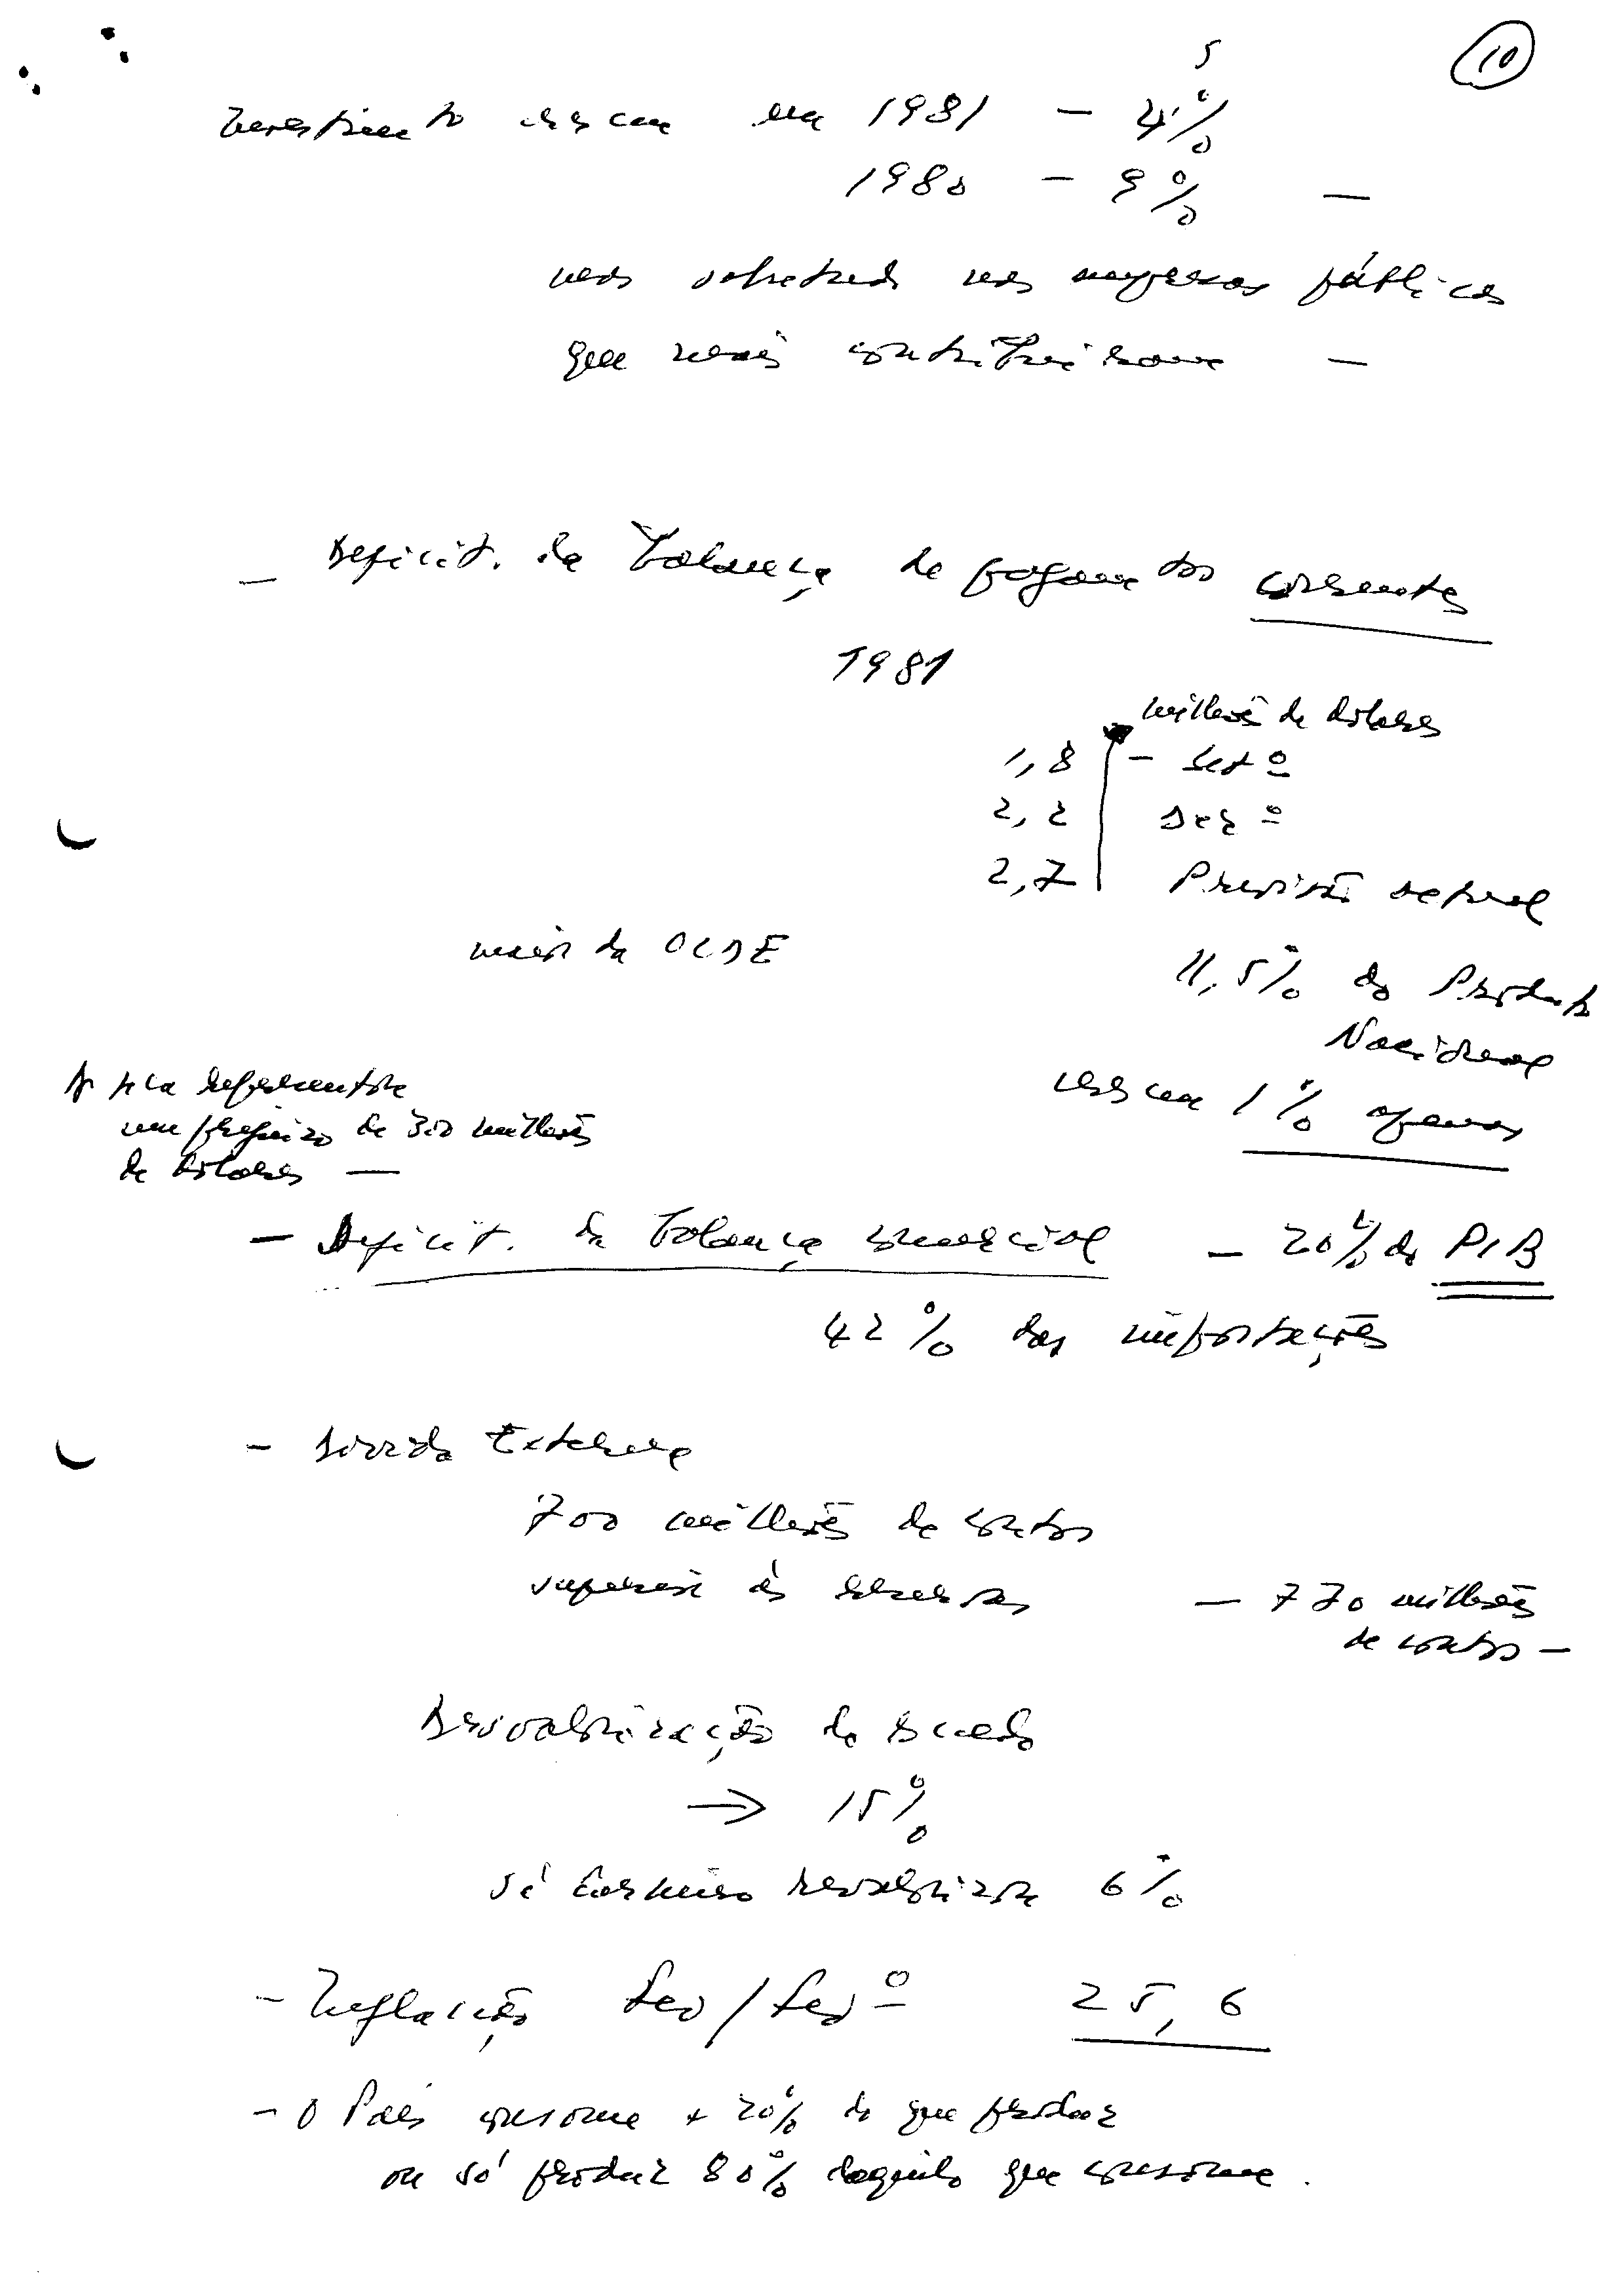 10
5
Investimento cresceu em 1981 – 4%
1980 – 9% –
mas sobretudo nas empresas públicas
que mais contribuiram –
– Deficit. da Balança de pagamentos correntes
1981
milhões de dólares
1,8 – Setº
2,2 Dezº
2,7 Previsão actual
maior da OCDE
11,5% do Produto
Nacional
cresceu 1% apenas
A seca representou
um prejuizo de 300 milhões
de dólares –
– Deficit. da Balança comercial – 20% do PIB
42% das importações
– Divida Externa
700 milhões de contos
superior às reservas – 770 milhões
de contos –
Desvalorização do Escudo
→ 15%
revalorizou 6%
– Inflação Fev/Fevº 25,6
– O País consome + 20% do que produz
ou só produz 80% daquilo que consome.